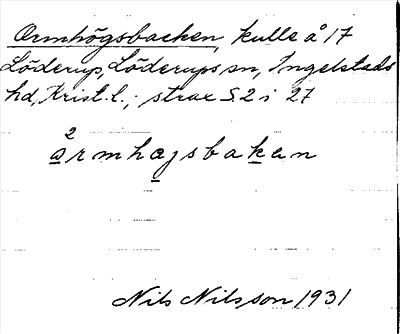 Ormhögsbacken, kulle å 17
Löderup, Löderups sn, Ingelstads
hd, Krist. l.; strax S. 2 i 27
2
årmhajsbakan
Nils Nilsson 1931